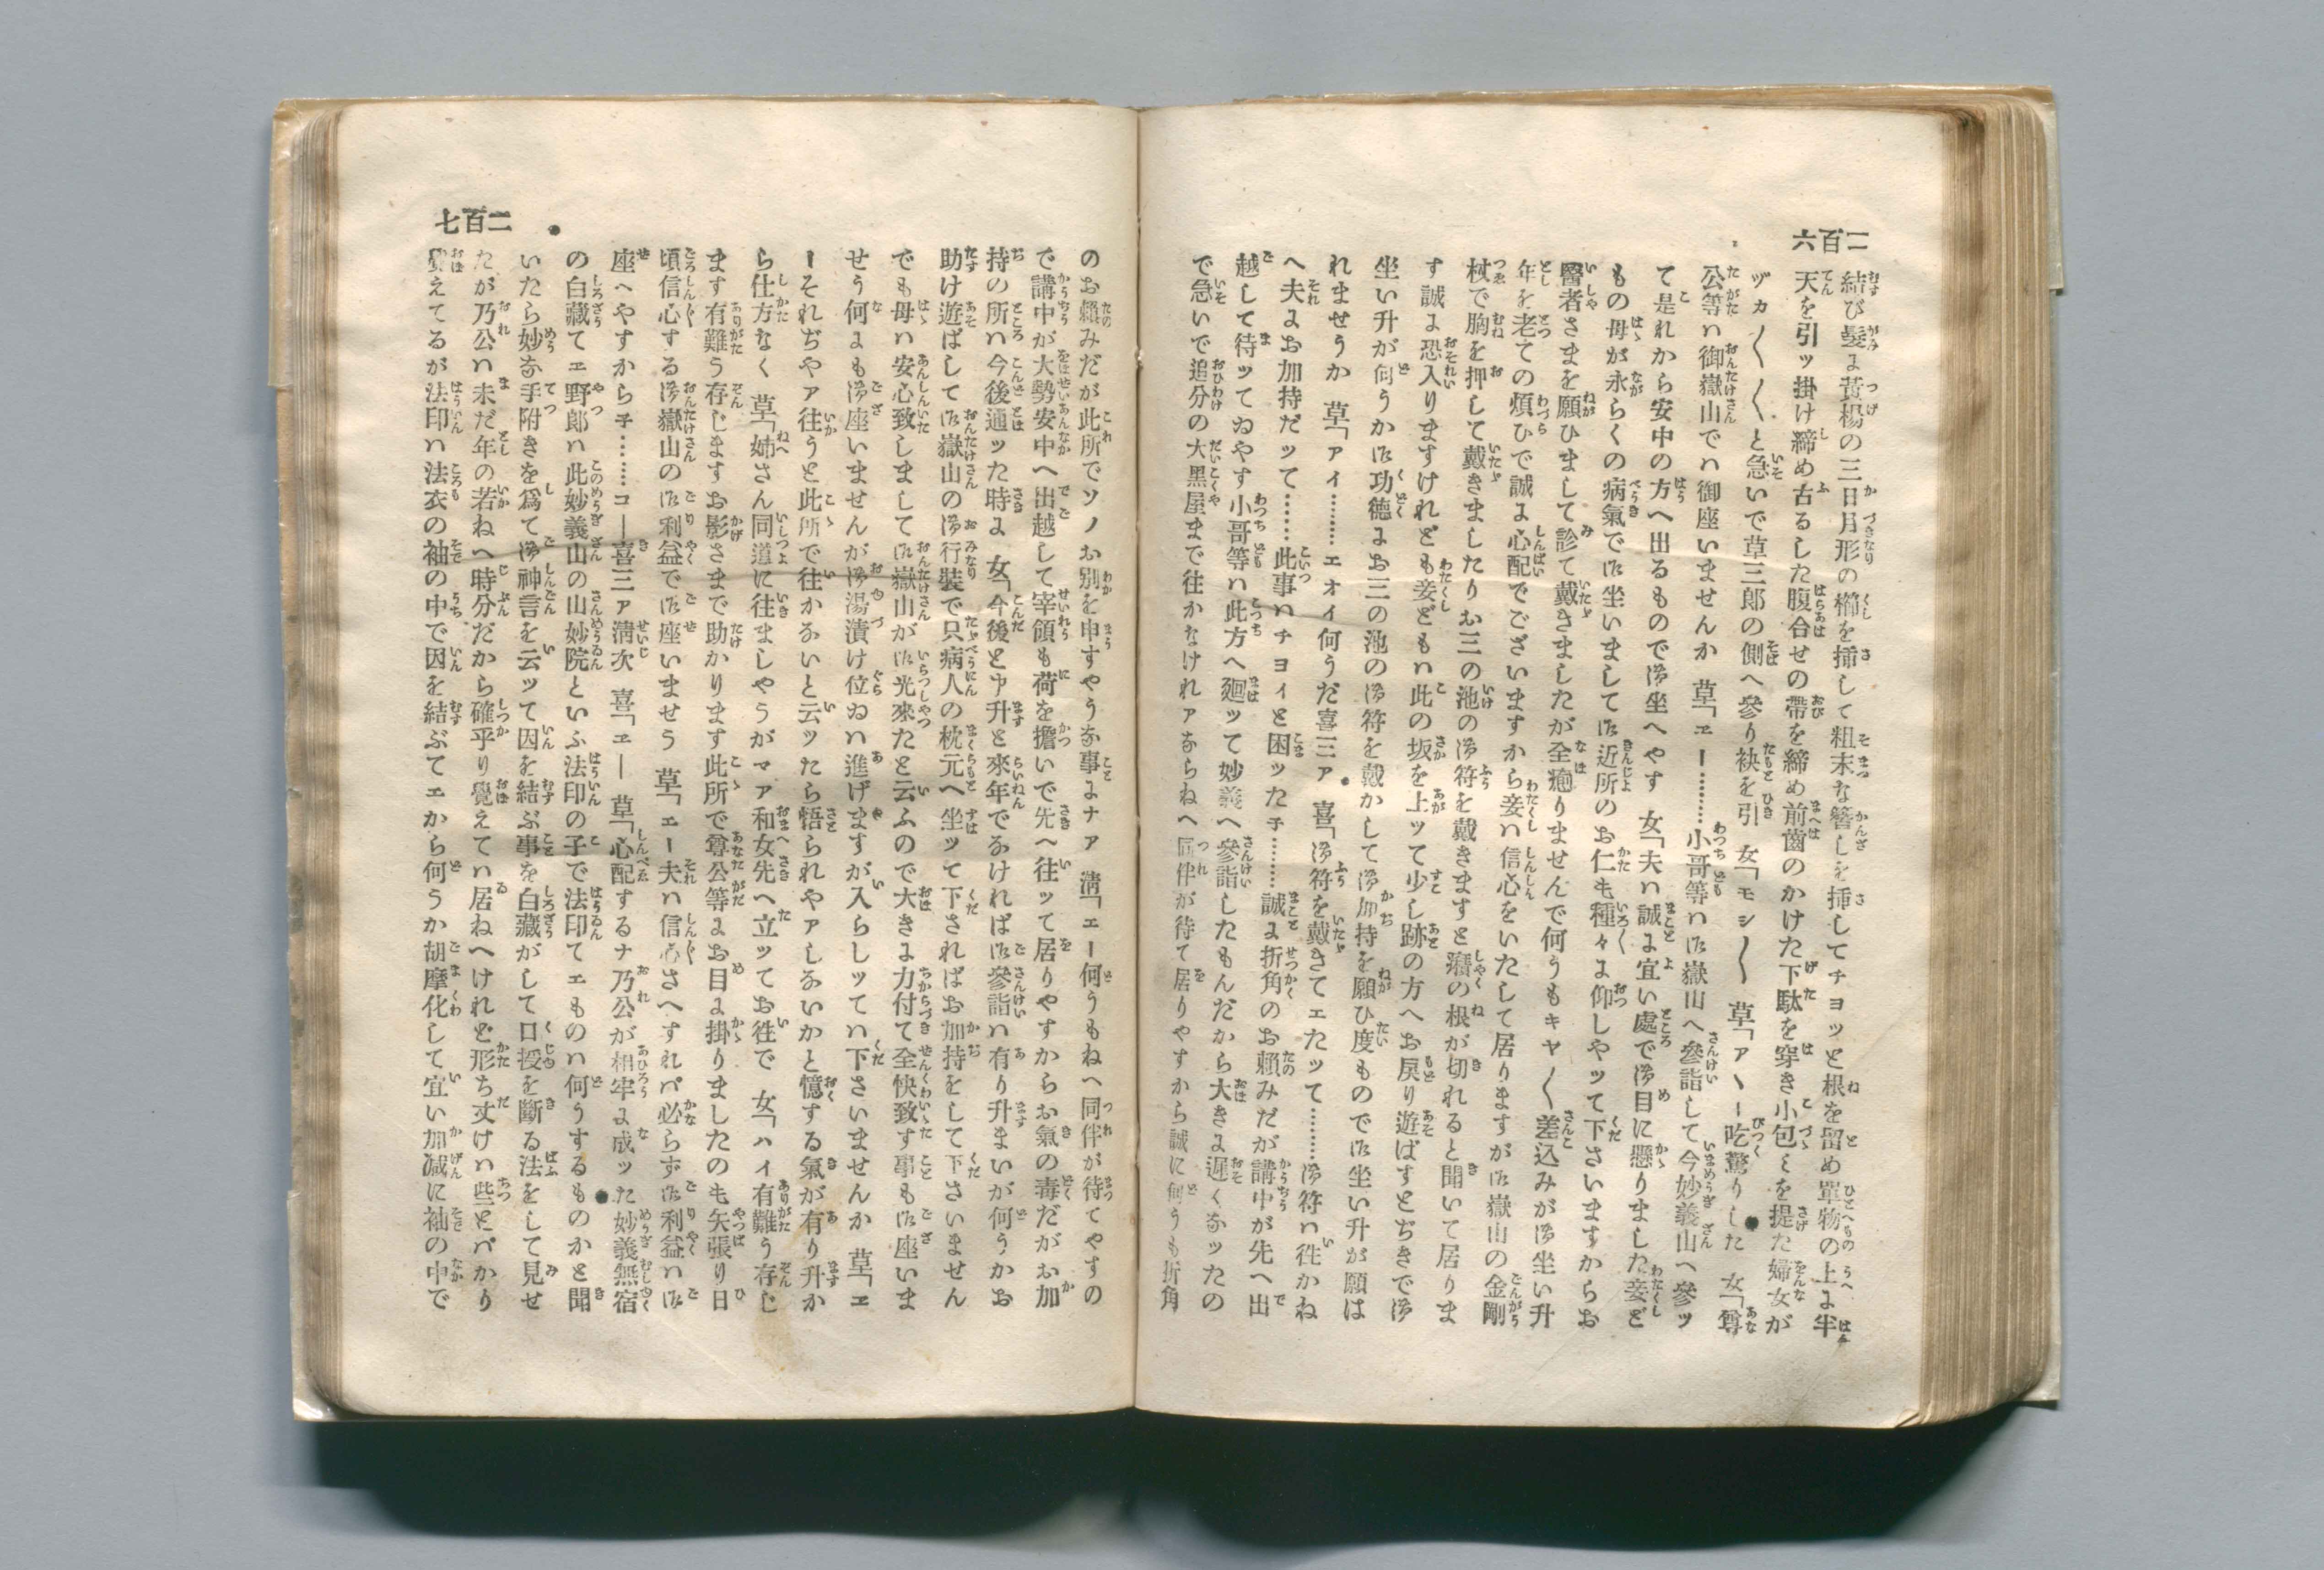 二百六
結び髮よ黃楊の三日月形の櫛を揷して粗末な簪しを揷してチヨツと根を留め單物の上よ半
天を引ッ掛け締め古るした腹合せの帶を締め前齒のかけた下駄を穿き小包を提た婦女が
ヅカ〱〱と急いで草三郎の側へ參り袂を引 女「モシ〱 草「アヽー吃驚りした 女「尊
公等ハ御嶽山でハ御座いませんか 草「エー………小哥等ハ御嶽山へ參詣して今妙義山へ參ッ
て是れから安中の方へ出るもので御坐へやす 女「夫ハ誠よ宜い處で御目に懸りました妾ど
もの母が永らくの病氣で御坐いまして御近所のお仁も種々よ仰しやッて下さいますからお
醫者さまを願ひまして診て戴きましたが全癒りませんで何うもキヤ〱差込みが御坐い升
年を老ての煩ひで誠よ心配でございますから妾ハ信心をいたして居りますが御嶽山の金剛
杖で胸を押して戴きましたりお三の池の御符を戴きますと癪の根が切れると聞いて居りま
す誠よ恐入りますけれども妾どもハ此の坂を上ッて少し跡の方へお戻り遊ばすとぢきで御
坐い升が何うか御功德よお三の池の御符を戴かして御加持を願ひ度もので御坐い升が願は
れませうか 草「アイ………エオイ何うだ喜三ァ 喜「御符を戴きてェたッて………御符ハ徃かね
へ夫よお加持だッて……此事ハチヨイと困ッた子………誠よ折角のお賴みだが講中が先へ出
越して待ッてゐやす小哥等ハ此方へ廻ッて妙義へ參詣したもんだから大きよ遲くなッたの
で急いで追分の大黑屋まで往かなけれァならねへ同伴が待て居りやすから誠に何うも折角
二百七
のお賴みだが此所でソノお別を申すやうな事よナァ 淸「エー何うもねへ同伴が待てやすの
で講中が大勢安中へ出越して宰領も荷を擔いで先へ往ッて居りやすからお氣の毒だがお加
持の所ハ今後通ッた時よ 女「今後と申升と來年でなければ御參詣ハ有り升まいが何うかお
助け遊ばして御嶽山の御行裝で只病人の枕元へ坐ッて下さればお加持をして下さいません
でも母ハ安心致しまして御嶽山が御光來たと云ふので大きよ力付て全快致す事も御座いま
せう何よも御座いませんが御湯漬け位ゐハ進げますが入らしッてハ下さいませんか 草「エ
ーそれぢやァ往うと此所で往かないと云ッたら悟られやァしないかと憶する氣が有り升か
ら仕方なく 草「姉さん同道に往ましやうがマァ和女先へ立ッてお徃で 女「ハイ有難う存じ
ます有難う存じますお影さまで助かります此所で尊公等よお目よ掛りましたのも矢張り日
頃信心する御嶽山の御利益で御座いませう 草「エー夫ハ信心さへすれバ必らず御利益ハ御
座へやすから子……コ―喜三ァ淸次 喜「エ― 草「心配するナ乃公が相牢よ成ッた妙義無宿
の白藏てェ野郎ハ此妙義山の山妙院といふ法印の子で法印てェものハ何うするものかと聞
いたら妙な手附きを爲て御神言を云ッて因を結ぶ事を白藏がして口授を斷る法をして見せ
たが乃公ハ未だ年の若ねへ時分だから確乎り覺えてハ居ねへけれど形ち丈けハ些とバかり
覺えてるが法印ハ法衣の袖の中で因を結ぶてェから何うか胡摩化して宜い加減に袖の中で